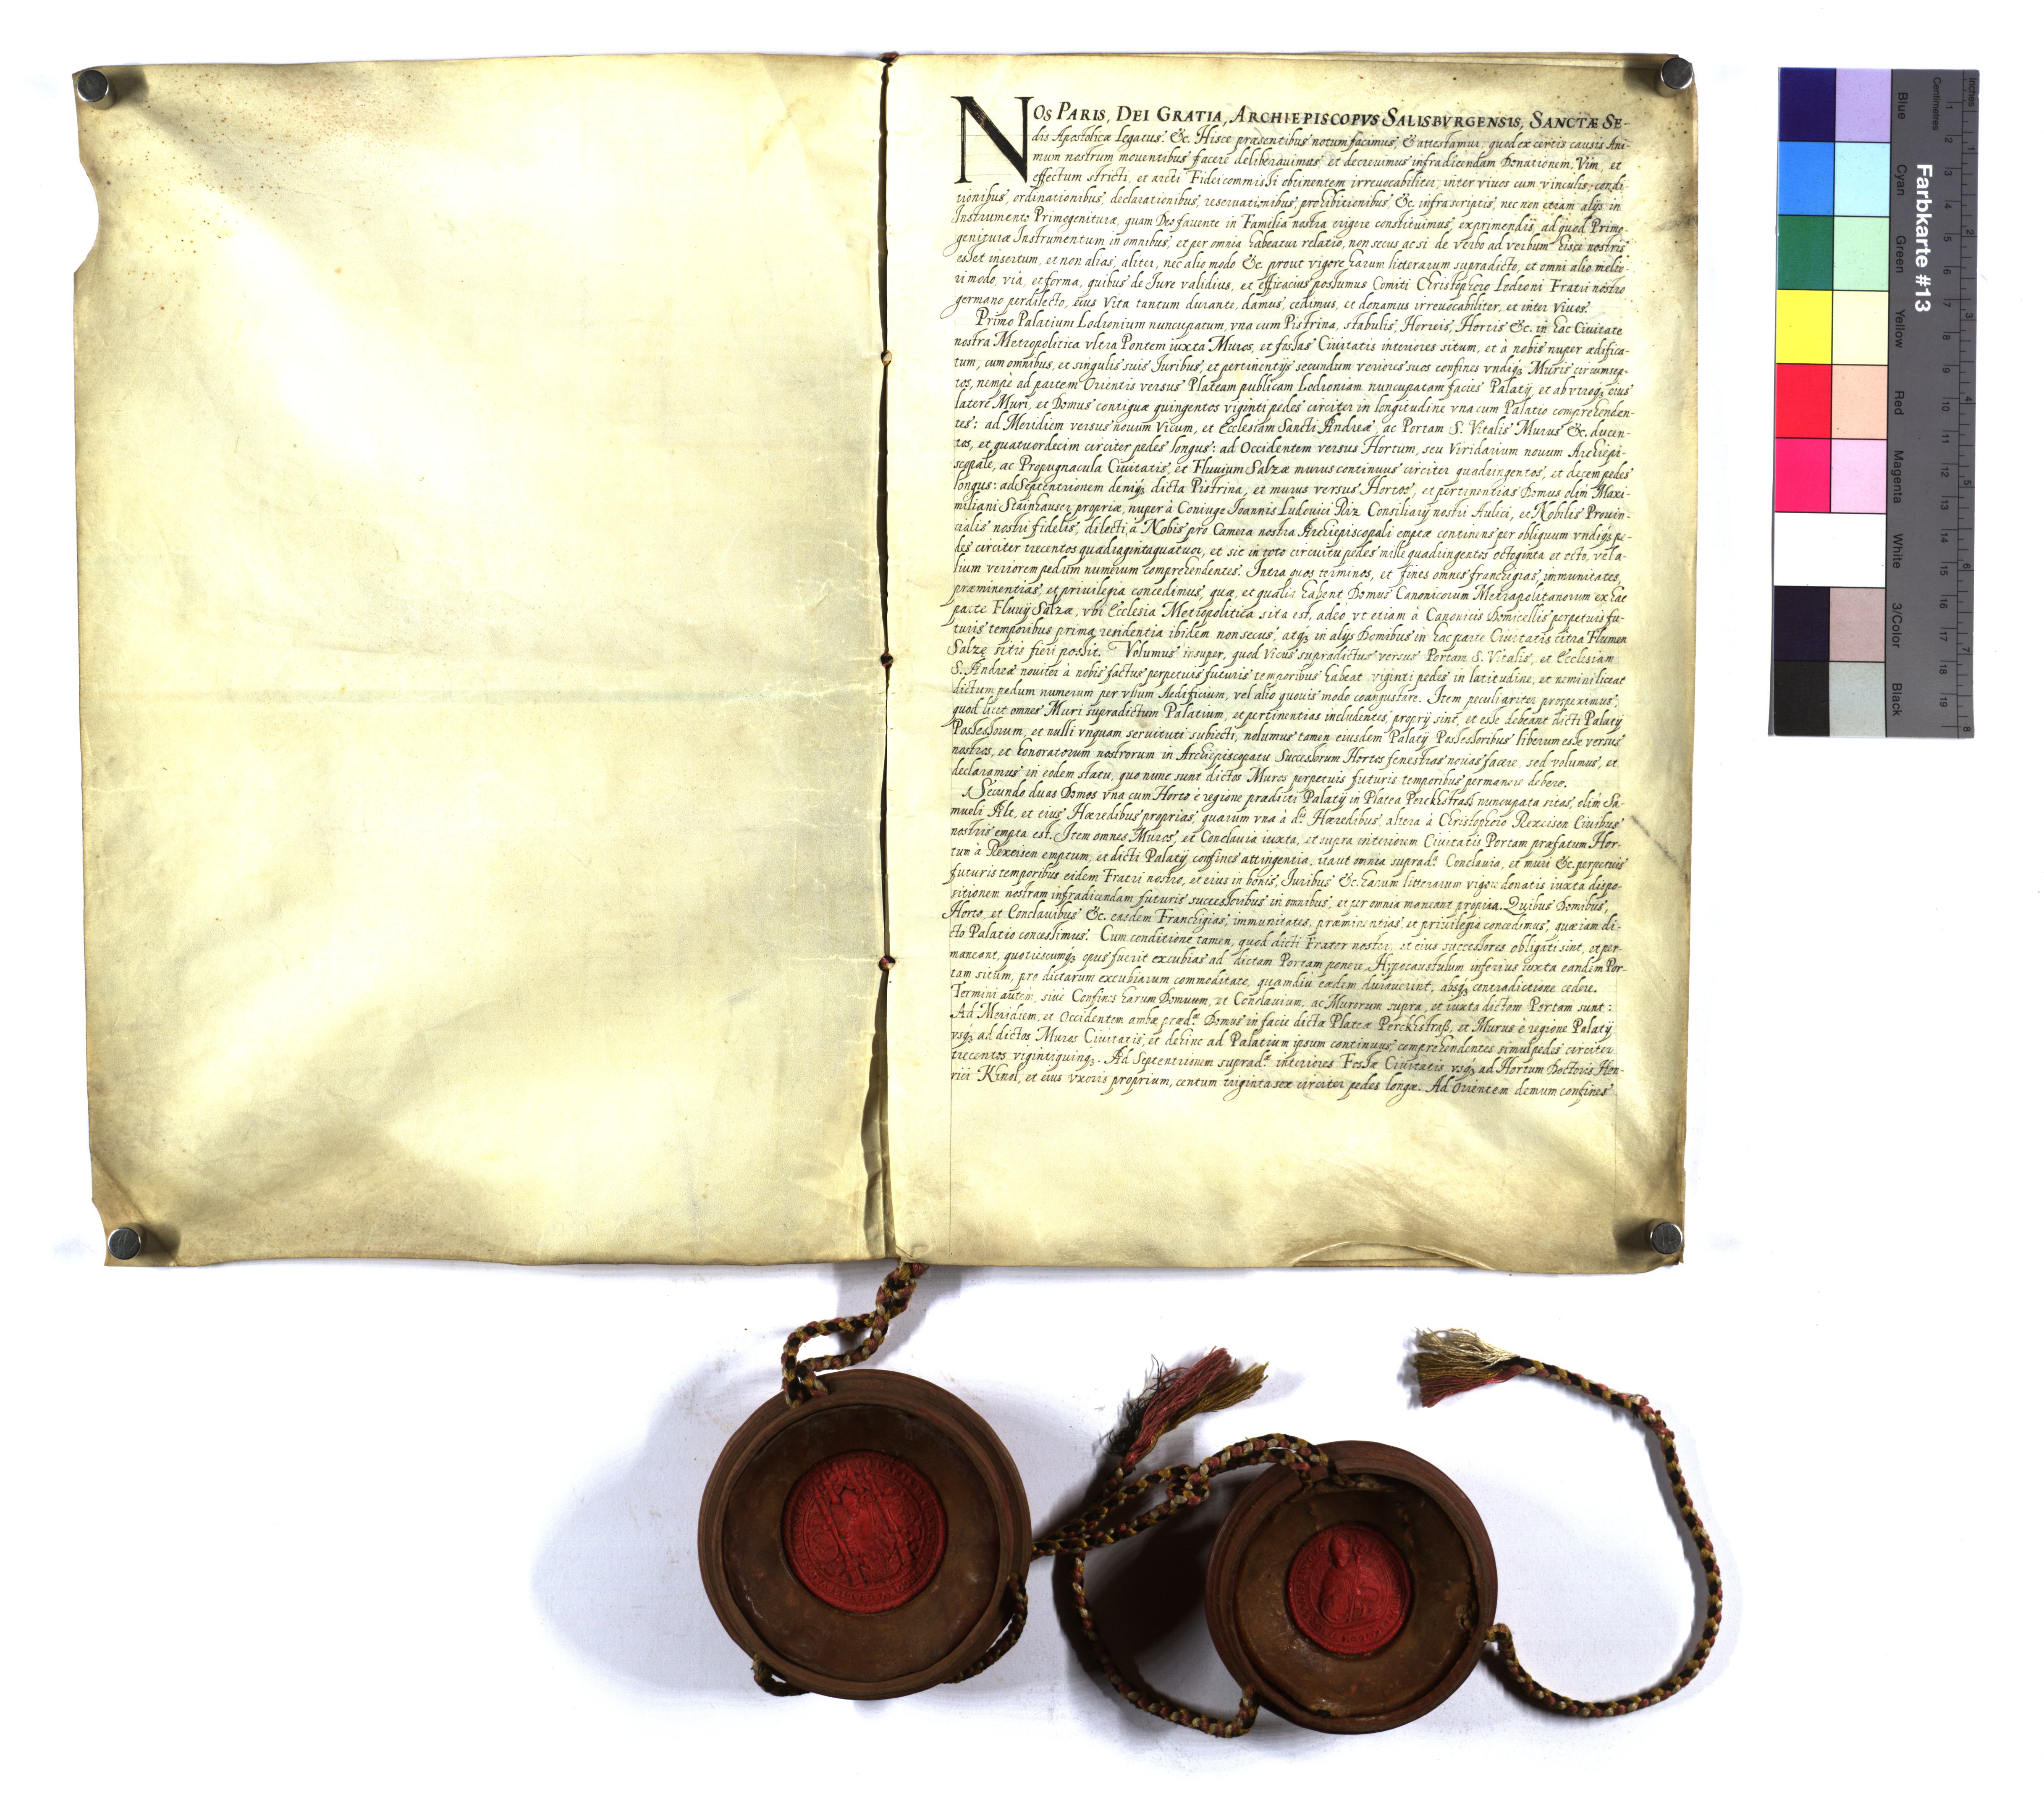 NOS PARIS, DEI GRATIA, ARCHIEPISCOPVS SALISBVRGENSIS, SANCTÆ SE-
dis Apostolicæ Legatus &c. Hisce præsentibus notum facimus, & attestamur, quod ex certis causis Ani-
mum nostrum mouentibus facere deliberauimus, et decreuimus infradicendam Donationem, Vim, et
effectum stricti, et arcti Fideicommissi obtinentem irreuocabiliter, inter viuos cum vinculis, condi-
tionibus, ordinationibus, declarationibus, reseruationibus, prohibitionibus, &c. infrascriptis, nec non etiam alijs in
Instrumento Primogenituræ, quam Deo fauente in Familia nostra erigere constituimus, exprimendis, ad quod Primo-
genituræ Instrumentum in omnibus, et per omnia habeatur relatio, non secus, ac si de verbo ad verbum hisce nostris
esset insertum, et non alias, aliter, nec alio modo &c. prout vigore harum litterarum supradicto, et omni alio melio-
ri modo, via, et forma, quibus de Jure validius, et efficacius possumus Comiti Christophoro Lodroni Fratri nostro
germano perdilecto, eius Vita tantum durante, damus, cedimus, et donamus irreuocabiliter, et inter viuos.
Primo Palatium Lodronium nuncupatum, vna cum Pistrina, stabulis, Horreis, Hortis &c. in hac Ciuitate
nostra Metropolitica vltra Pontem iuxta Muros, et fossas Ciuitatis interiores situm, et à nobis nuper ædifica-
tum, cum omnibus, et singulis suis Juribus, et pertinentijs secundum veriores suos confines vndiq; Muris circumsep-
tos, nempè ad partem Orientis versus Plateam publicam Lodroniam nuncupatam facies Palatij, et ab vtroq; eius
latere Muri, et Domus contiguæ quingentos viginti pedes circiter in longitudine vna cum Palatio comprehenden-
tes: ad Meridiem versus nouum Vicum, et Ecclesiam Sancti Andreæ, ac Portam S. Vitalis Murus &c. ducen-
tos, et quatuordecim circiter pedes longus: ad Occidentem versus Hortum, seu Viridarium nouum Archiepi-
scopale, ac Propugnacula Ciuitatis, et Fluuium Salzæ murus continuus circiter quadringentos, et decem pedes
longus: ad Septentrionem deniq; dicta Pistrina, et murus versus Hortos, et pertinentias Domus olim Maxi-
miliani Stainhauser propriæ, nuper à Coniuge Joannis Ludouici Riz Consiliarij nostri Aulici, et Nobilis Prouin-
cialis nostri fidelis, dilecti à Nobis pro Camera nostra Archiepiscopali emptæ continens per obliquum vndiq; pe-
des circiter trecentos quadragintaquatuor, et sic in toto circuitu pedes mille quadringentos octoginta et octo, vel a-
lium veriorem pedum numerum comprehendentes. Intra quos terminos, et fines omnes franchigias, immunitates,
præminentias, et priuilegia concedimus, quæ, et qualia habent Domus Canonicorum Metropolitanorum ex hac
parte Fluuij Salzæ, vbi Ecclesia Metropolitica sita est, adeò vt etiam à Canonicis Domicellis perpetuis fu-
turis temporibus prima residentia ibidem non secus, atq; in alijs Domibus in hac parte Ciuitatis citra Flumen
Salzę sitis fieri possit. Volumus insuper, quod Vicus supradictus versus Portam S. Vitalis, et Ecclesiam
S. Andreæ nouiter à nobis factus perpetuis futuris temporibus habeat viginti pedes in latitudine, et nemini liceat
dictum pedum numerum per vllum Aedificium, vel alio quouis modo coangustare. Item peculiariter prospeximus,
quod licet omnes Muri supradictum Palatium, et pertinentias includentes, proprij sint, et esse debeant dicti Palatij
Possessorum, et nulli vnquam seruituti subiecti, nolumus tamen eiusdem Palatij Possessoribus liberum esse versus
nostros, et honoratorum nostrorum in Archiepiscopatu Successorum Hortos fenestras nouas facere, sed volumus, et
declaramus in eodem statu, quo nunc sunt dictos Muros perpetuis futuris temporibus permanere debere.
Secundo duas Domos vna cum Horto è regione prædicti Palatij in Platea Perckhstrass nuncupata sitas, olim Sa-
mueli Alt, et eius Hæredibus proprias, quarum vna à d.is Hæredibus, altera à Christophoro Rexeisen Ciuibus
nostris empta est. Item omnes Muros, et Conclauia iuxta, et supra interiorem Ciuitatis Portam præfatum Hor-
tum à Rexeisen emptum, et dicti Palatij confines attingentia, ita ut omnia suprad.ta Conclauia, et muri &c. perpetuis
futuris temporibus eidem Fratri nostro, et eius in bonis, Juribus &c. harum litterarum vigore donatis iuxta dispo-
sitionem nostram infradicendam futuris successoribus in omnibus, et per omnia maneant propria. Quibus Domibus,
Horto, et Conclauibus &c. easdem Franchigias, immunitates, præminentias, et priuilegia concedimus, quæ iam di-
cto Palatio concessimus. Cum conditione tamen, quod dicti Frater noster, et eius successores obligati sint, et per-
maneant, quotiescumq; opus fuerit excubias ad dictam Portam ponere, Hypocaustulum inferius iuxta eandem Por-
tam situm, pro dictarum excubiarum commoditate, quamdiu eædem durauerint, absq; contradictione cedere.
Termini autem, siue Confines harum Domuum, et Conclauium, ac Murorum supra, et iuxta dictam Portam sunt:
Ad Meridiem, et Occidentem ambæ præd.tæ Domus in facie dictæ Plateæ Perckhstraß, et Murus è regione Palatij
vsq; ad dictos Muros Ciuitatis, et dehinc ad Palatium ipsum continuus, comprehendentes simul pedes circiter
trecentos vigintiquinq;. Ad Septentrionem suprad.tæ interiores Fossæ Ciuitatis vsq; ad Hortum Doctoris Hen-
rici Khnol, et eius vxoris proprium, centum trigintasex circiter pedes longæ. Ad Orientem demum confines
Farbkarte #13
Blue Cyan Green Yellow Red Magenta White 3/Color Black
Inches
1 2 3 4 5 6 7 8
Centimetres
1 2 3 4 5 6 7 8 9 10 11 12 13 14 15 16 17 18 19